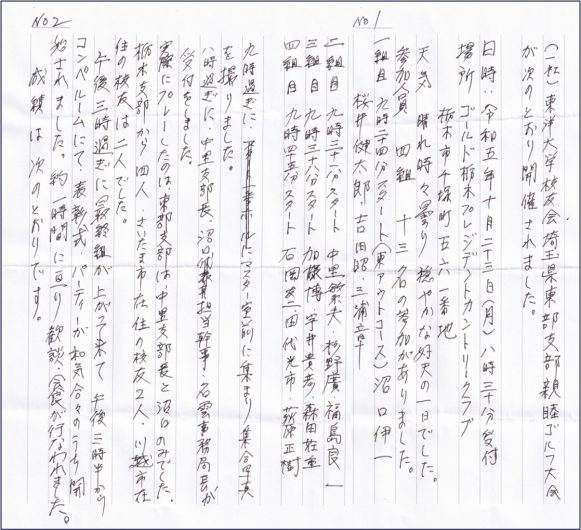 No 1
(一社)東洋大学校友会埼玉県東部支部親睦ゴルフ大会
が次のとおり開催されました。
日時:令和五年十月二十三日(月)八時三十分受付
場所 ゴールド栃木プレジデントカントリークラブ
栃木市千塚町五六一番地
天気 晴れ時々曇り 穏やかな好天の一日でした。
参加人員 四組 十三名の参加がありました。
一組目 九時二十四分スタート(東アウトコース)沼口伊一
桜井健太郎・吉田昭・三浦章
二組目 九時三十一分スタート 中里繁夫・杉野廣・福島良一
三組目 九時三十八分スタート 加藤博・宇井貴彦・森田在重
四組目 九時四十五分スタート 石岡 ・田代光市・荻原正樹
No 2
九時過ぎに、 マスター室前に集まり集合写真
を撮りました。
八時過ぎに、中里支部長、沼口 担当幹事・名雲事務局長が
受付をしました。
実際にプレーしたのは、東部支部は、中里支部長と沼口のみでした。
栃木支部から四人、さいたま市在住の校友2人、川越市在
住の校友は二人でした。
午後三時過ぎに最終組が上がって来て 午後三時半から
コンペルームにて、表彰式・パーティーが和気合々のうち開
始されました。約一時間に亘り歓談・会食が行なわれました。
成績は次のとおりです。